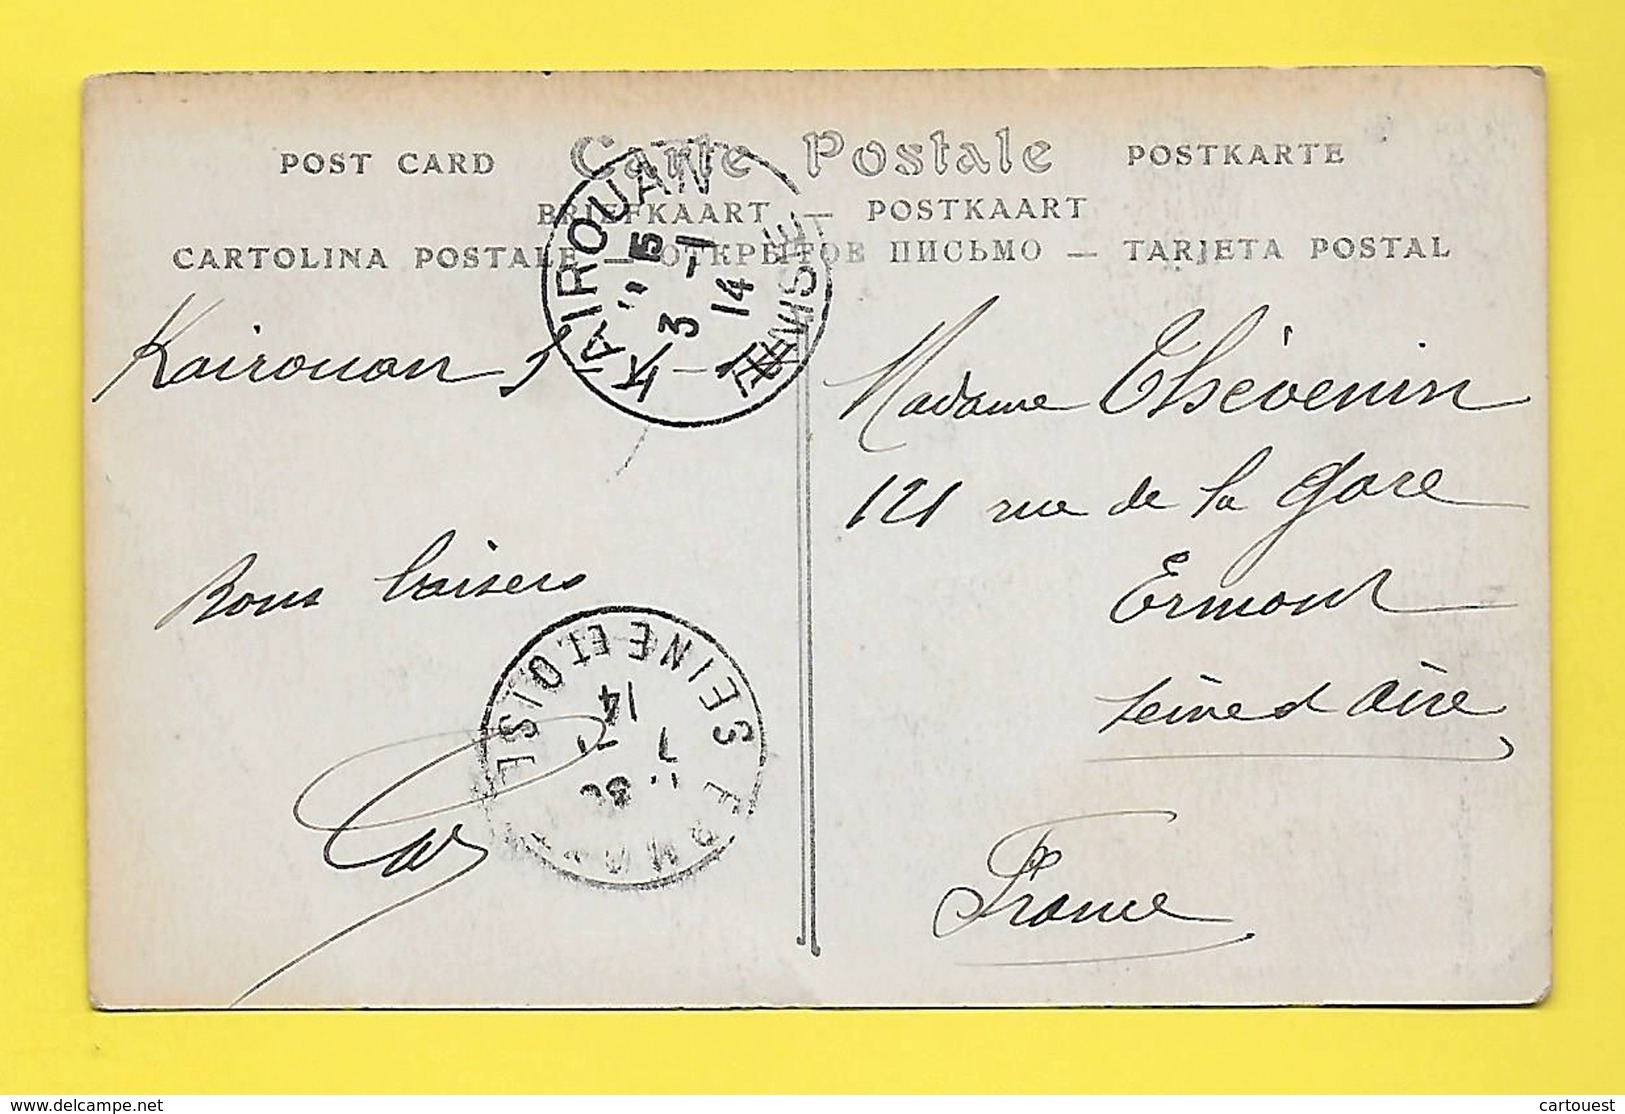 POST CARD Carte Postale POSTKARTE
BRIEFKAART — POSTKAART
CARTOLINA POSTALE — ОТКРЫТОЕ ПИСЬМО — TARJETA POSTAL
KAIROUAN
15
3 -1
14
TUNISIE
Kairouan
Madame Thévenin
121 rue de la gare
Ermont
Seine et Oise
France
Bons baisers
ERMONT
SEINE ET OISE
7
14
cartouest
www.delcampe.net